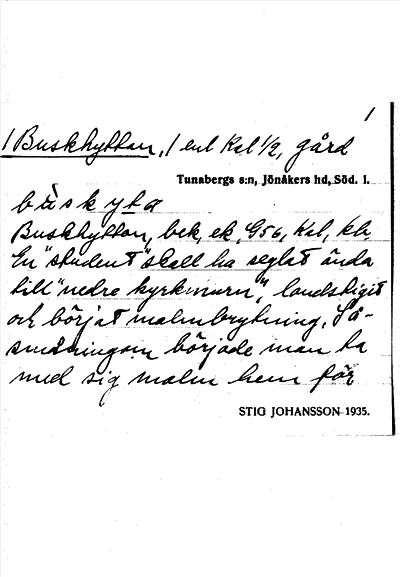 1
/ Buskhyttan, / enl Kal 1/2, gård
Tunabergs s:n, Jönåkers hd, Söd. l.
bùskyta
Buskhyttan, bek, ek, G56, Kal, kb.
En "student" skall ha seglat ända
till "nedre kyrkmurn", landstigit
och börjat malmbrytning. Så-
småningom började man ta
med sig malm hem för
STIG JOHANSSON 1935.